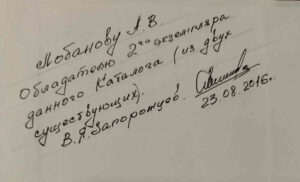 Лобанову А.В.
Обладателю 2го экземпляра
данного Каталога (из двух
существующих).
В.Я.Запорожцев.
23.08.2016г.